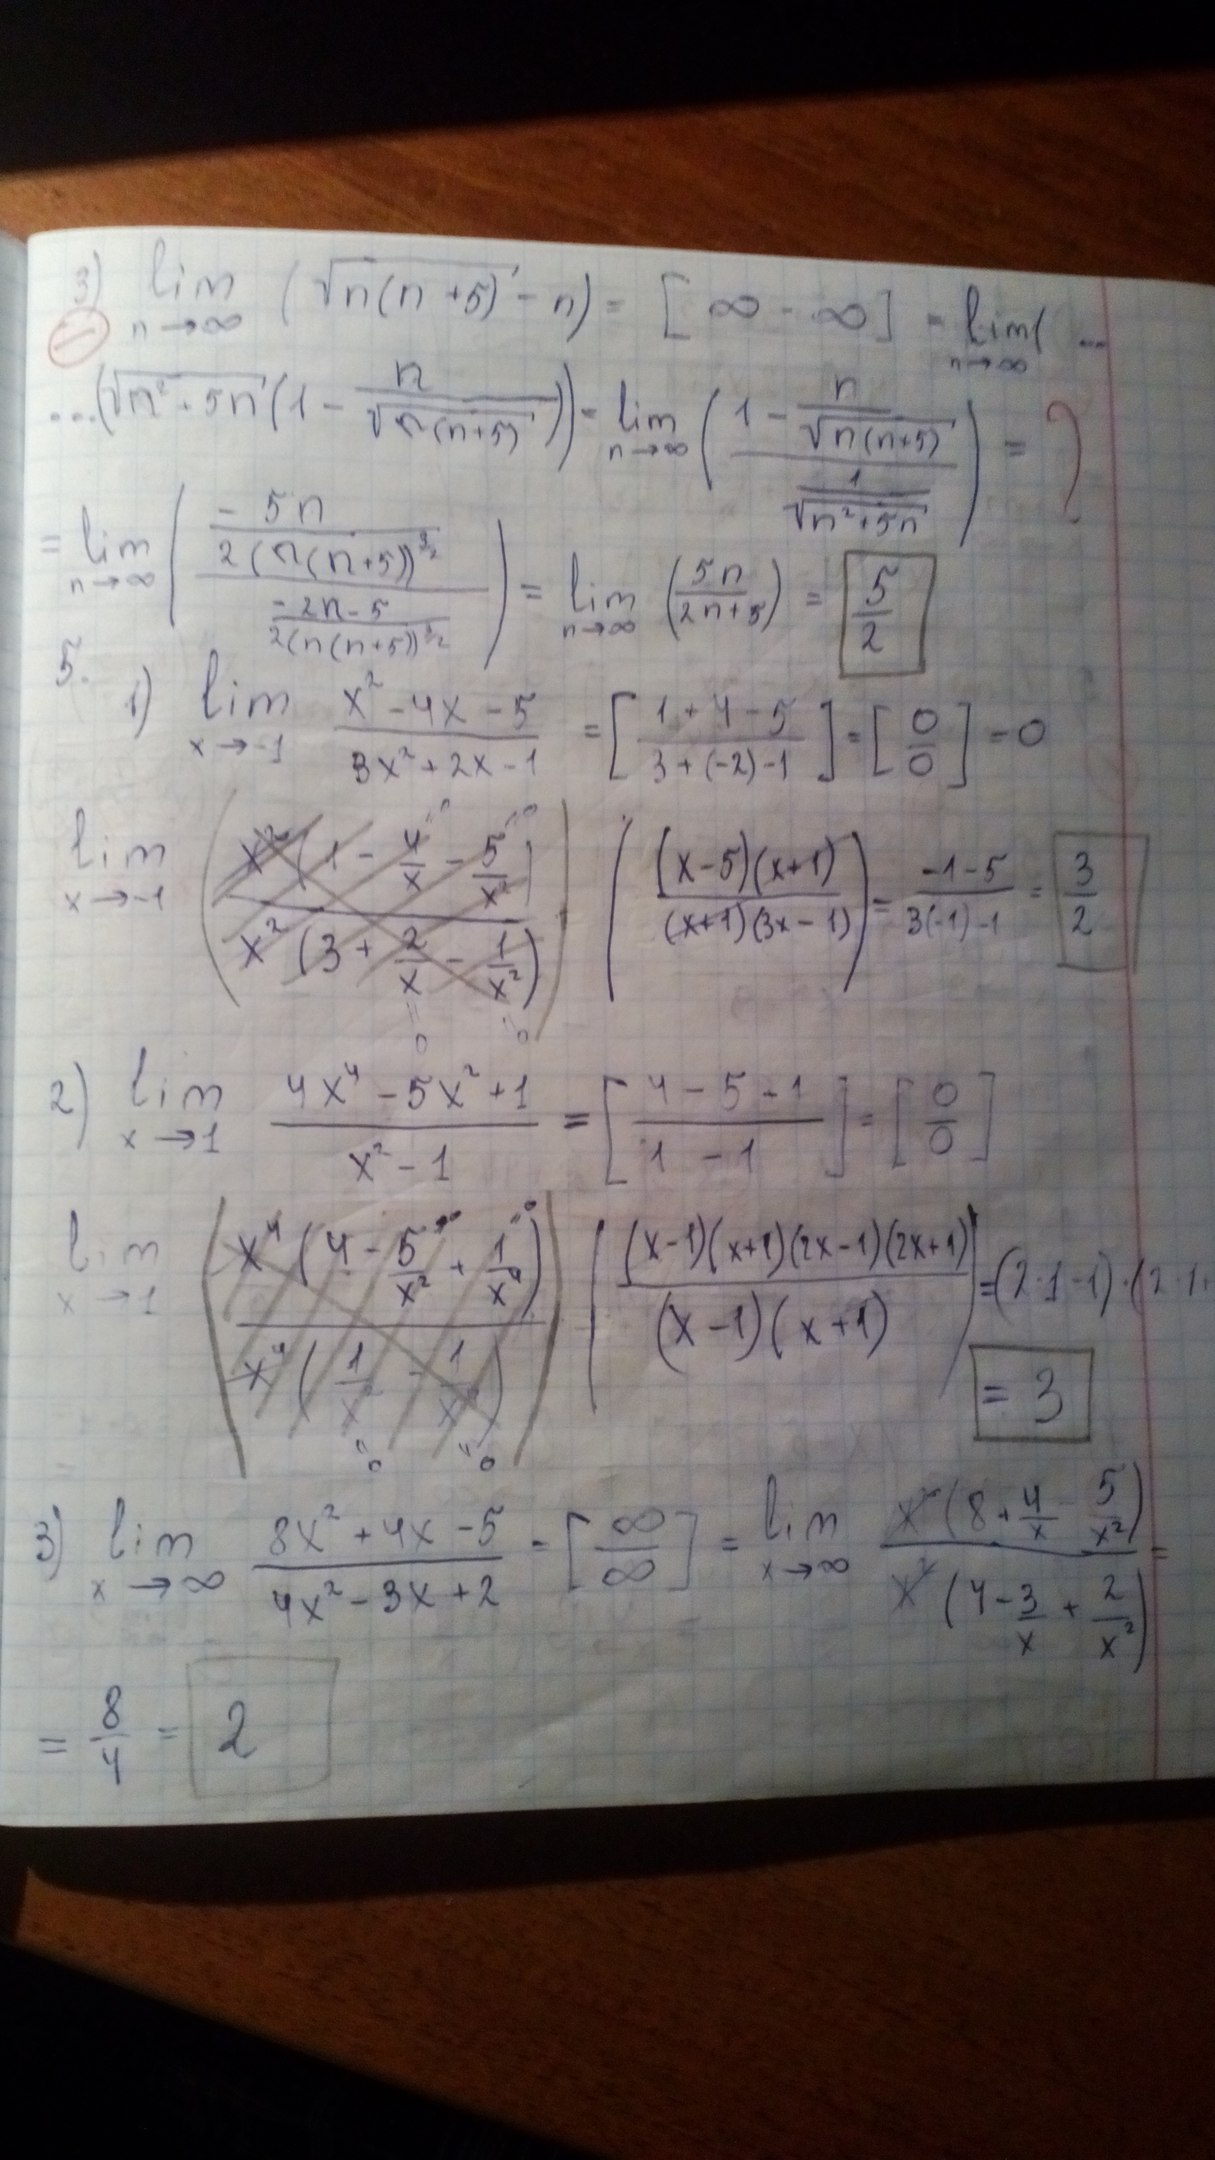 3) lim n→∞ (√n(n+5) - n) = [∞ - ∞] = lim n→∞ ( ...
...(√n²+5n (1 - n/√n(n+5))) = lim n→∞ ((1 - n/√n(n+5))/(1/√n²+5n)) = ?
= lim n→∞ ((-5n/2(n(n+5))^3/2)/(-2n-5/2(n(n+5))^3/2)) = lim n→∞ (5n/2n+5) = 5/2
5.
1) lim x→-1 x²-4x-5/3x²+2x-1 = [1+4-5/3+(-2)-1] = [0/0] = 0
lim x→-1 (x²(1 - 4/x - 5/x²)/x²(3 + 2/x - 1/x²)) ((x-5)(x+1)/(x+1)(3x-1)) = -1-5/3(-1)-1 = 3/2
2) lim x→1 4x⁴-5x²+1/x²-1 = [4-5+1/1-1] = [0/0]
lim x→1 (x⁴(4 - 5/x² + 1/x⁴)/x⁴(1/x² - 1/x⁴)) ((x-1)(x+1)(2x-1)(2x+1)/(x-1)(x+1)) = (2·1-1)·(2·1
= 3
3) lim x→∞ 8x²+4x-5/4x²-3x+2 = [∞/∞] = lim x→∞ x²(8 + 4/x - 5/x²)/x²(4 - 3/x + 2/x²) =
= 8/4 = 2